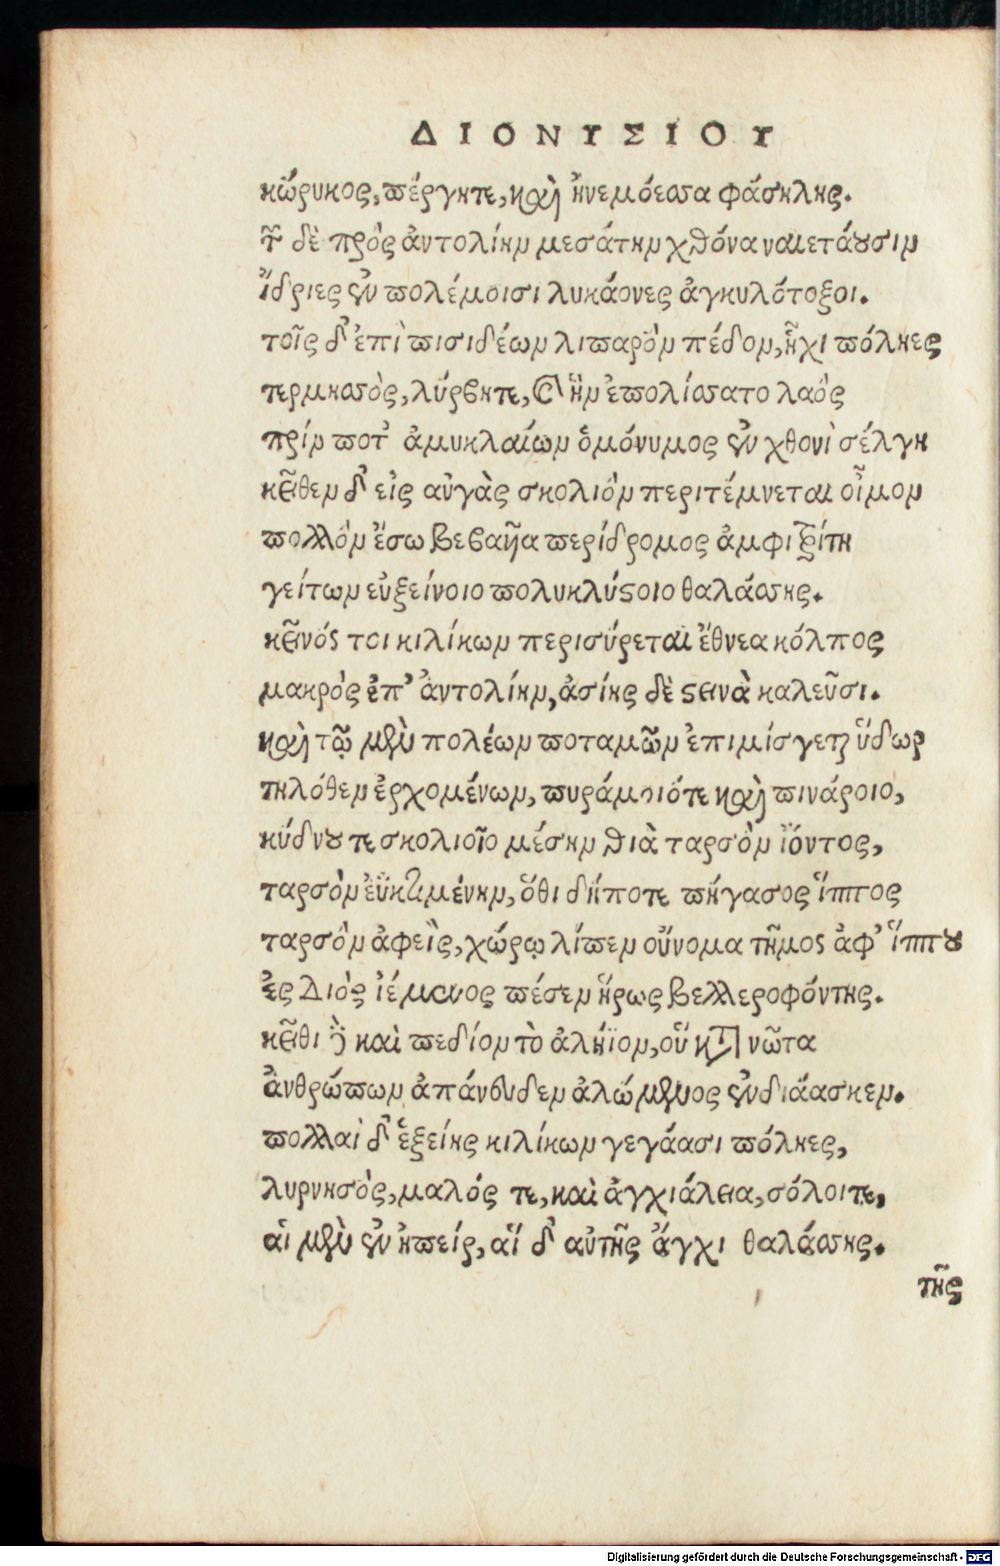 ΔΙΟΝΥΣΙΟΥ
κώρυκος, πέργητε, καὶ ἠνεμόεσσα φάσηλης.
τῆς δὲ πρὸς ἀντολίην μεσάτην χθόνα ναιετάουσιν
ἴδριες ἐν πολέμοισι λυκάονες ἀγκυλότοξοι.
τοῖς δ' ἐπὶ πισιδέων λιπαρὸν πέδον, ἧχι πόληες
τερμησσὸς, λύρβητε, καὶ ἣν ἐπολίσσατο λαὸς
πρίν ποτ' ἀμυκλαίων ὁμόνυμος ἐν χθονὶ σέλγη
κεῖθεν δ' εἰς αὐγὰς σκολιὸν περιτέμνεται οἶμον
πολλὸν ἔσω βεβαῆα περίδρομος ἀμφιτρίτη
γείτων εὐξείνοιο πολυκλύστοιο θαλάσσης.
κεῖνός τοι κιλίκων περισύρεται ἔθνεα κόλπος
μακρὸς ἐπ' ἀντολίην, ἀσίης δὲ στεινὰ καλεῦσι.
καὶ τῷ μὲν πολέων ποταμῶν ἐπιμίσγεται ὕδωρ
τηλόθεν ἐρχομένων, πυράμοιότε καὶ πινάροιο,
κύδνου τε σκολιοῖο μέσην διὰ ταρσὸν ἰόντος,
ταρσὸν ἐϋκταμένην, ὅθι δήποτε πήγασος ἵππος
ταρσὸν ἀφεὶς, χώρῳ λίπεν οὔνομα τῆμος ἀφ' ἵππου
ἐς Διὸς ἱέμενος πέσεν ἥρως βελλεροφόντης.
κεῖθι δὲ καὶ πεδίον τὸ ἀλήϊον, οὗ κατὰ νῶτα
ἀνθρώπων ἀπάνευθεν ἀλώμενος ἐνδιάασκεν.
πολλαὶ δ' ἑξείης κιλίκων γεγάασι πόληες,
λυρνησὸς, μαλός τε, καὶ ἀγχιάλεια, σόλοιτε,
αἱ μὲν ἐν ἠπείρῳ, αἵ δ' αὐτῆς ἄγχι θαλάσσης.
τῆς
Digitalisierung gefördert durch die Deutsche Forschungsgemeinschaft - DFG